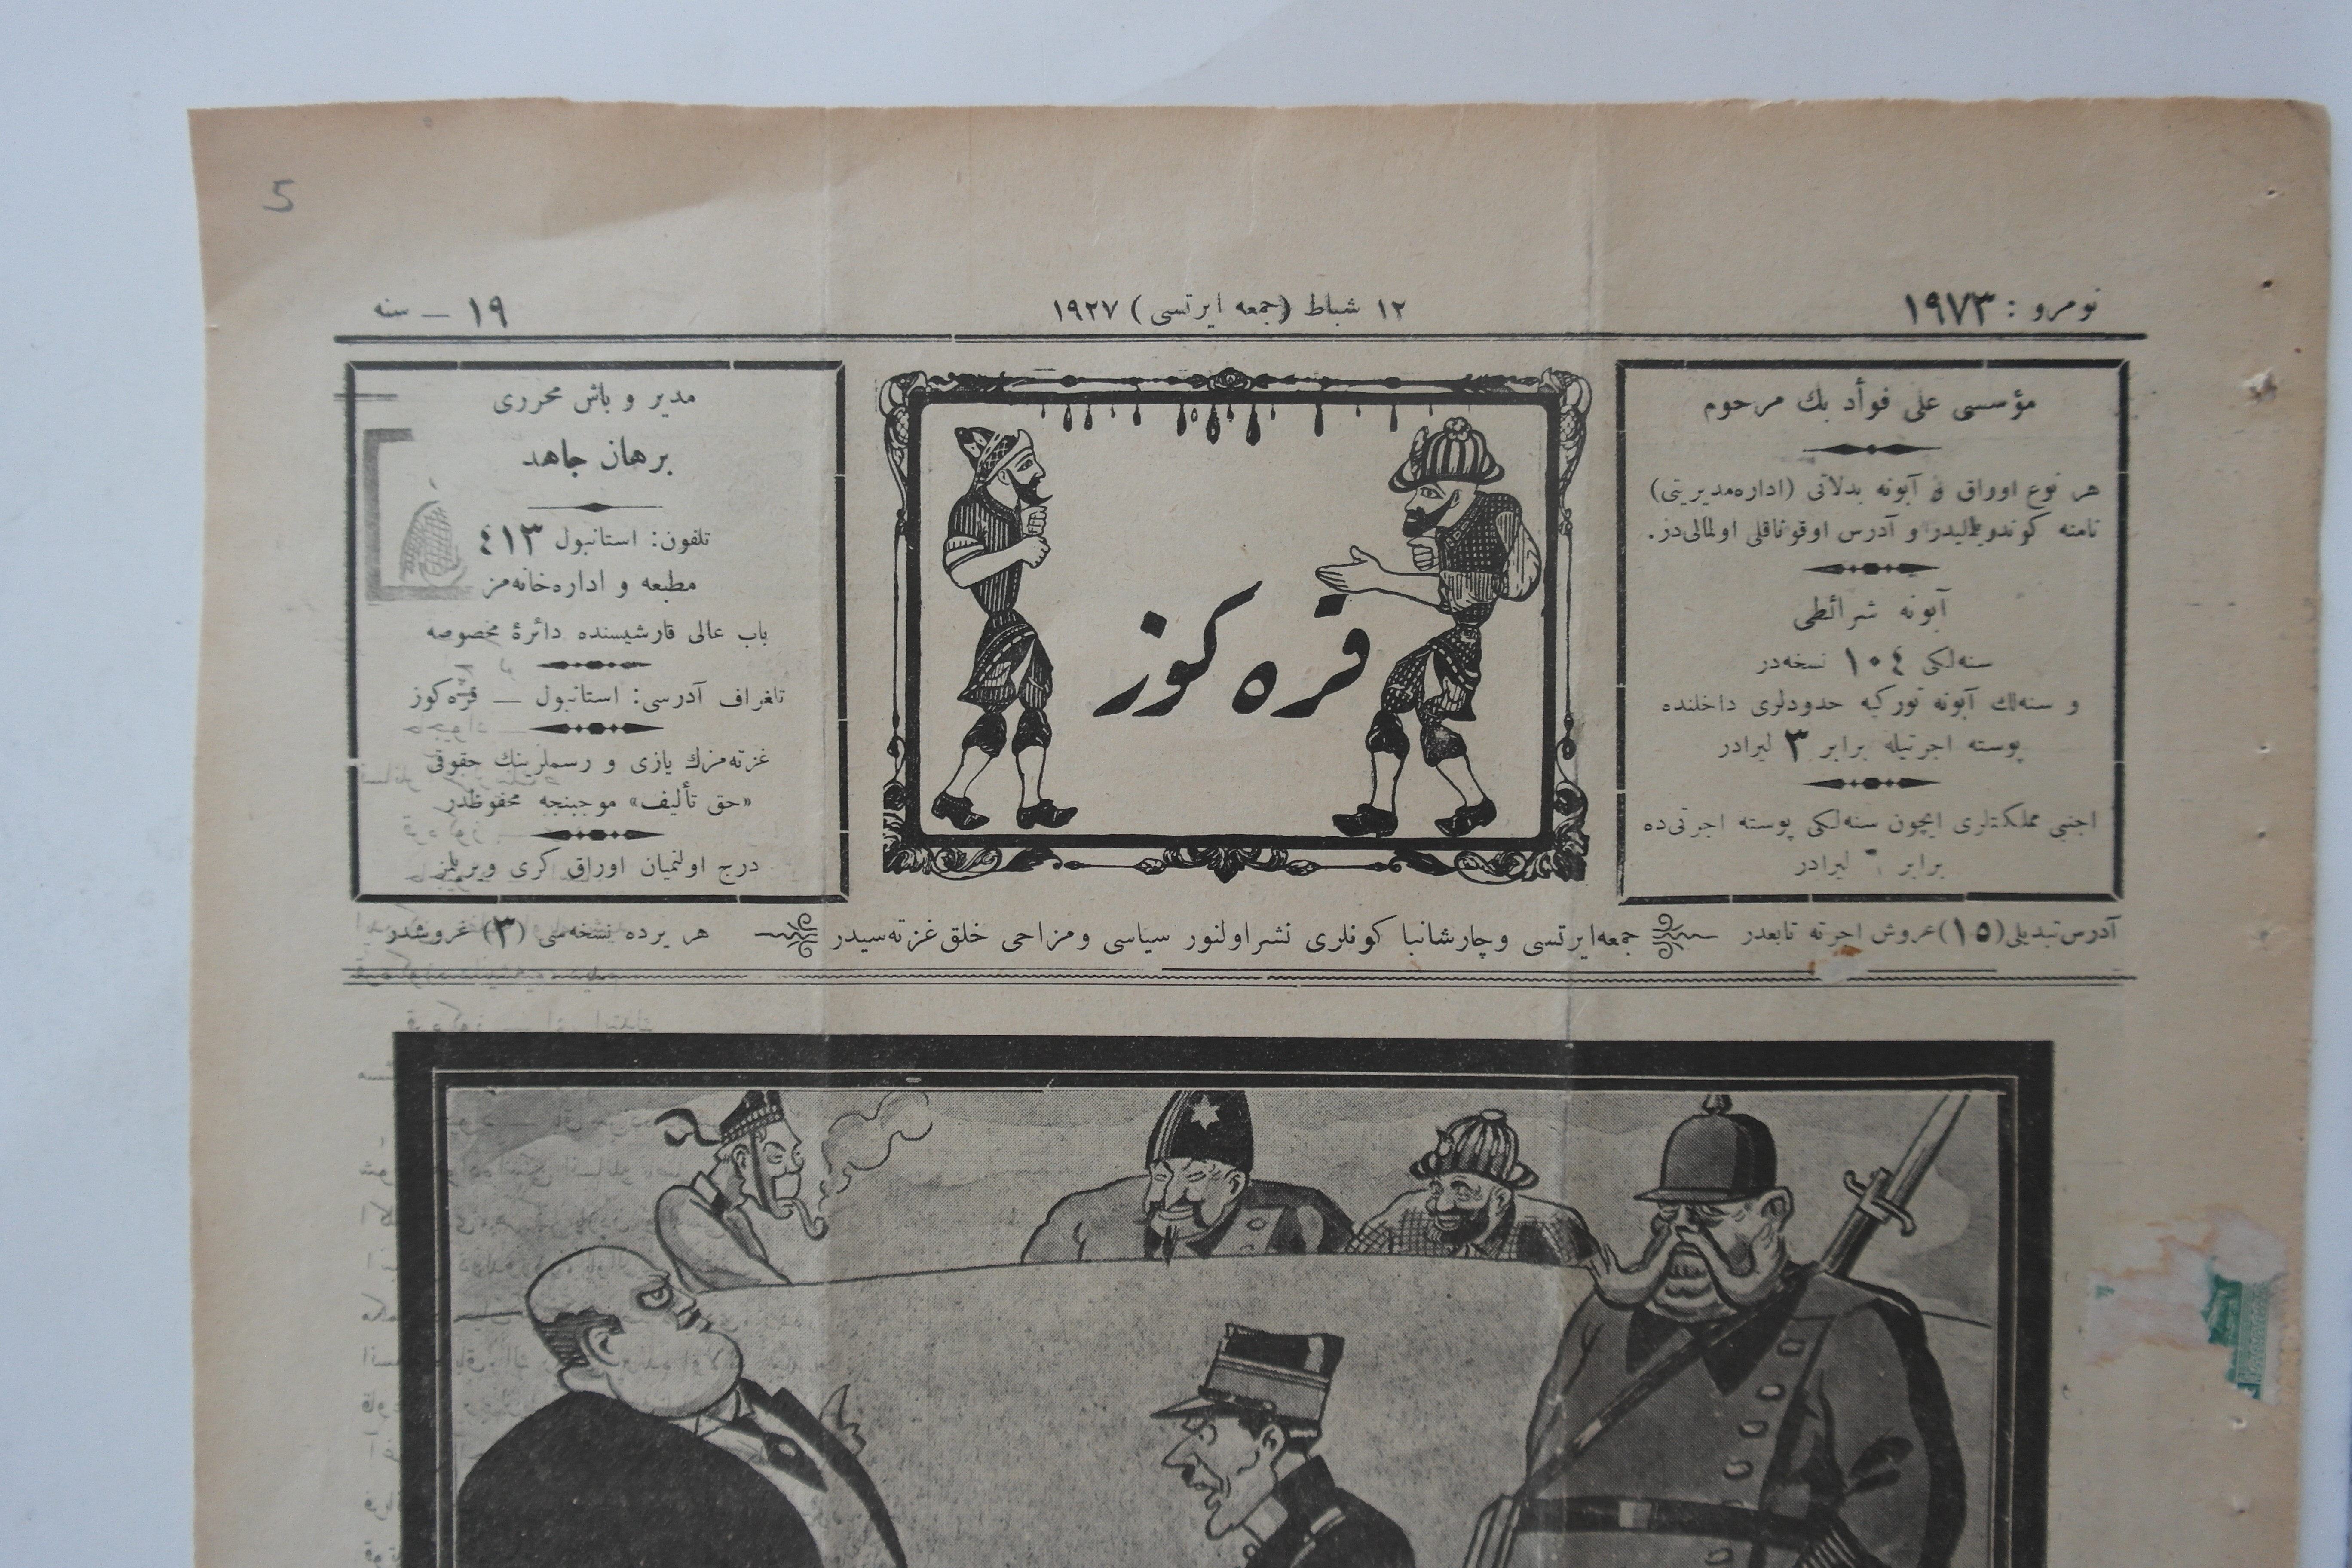 نومرو : ١٩٧٣
١٢ شباط (جمعه ايرتسى) ١٩٢٧
١٩ — سنه
مؤسسى على فوأد بك مرحوم
هر نوع اوراق و آبونه بدلاتى (اداره‌مديريتى)
نامنه كوندرملليدر و آدرس اوقوناقلى اولمالى‌در.
آبونه شرائطى
سنه‌لكى ١٠٤ نسخه‌در
و سنه‌لك آبونه توركيه حدودلرى داخلنده
پوسته اجرتيله برابر ٣ ليرادر
اجنبى مملكتلرى ايچون سنه‌لكى پوسته اجرتى‌ده
برابر ليرادر
قره كوز
مدير و باش محررى
برهان جاهد
تلفون: استانبول ٤١٣
مطبعه و اداره‌خانه‌مز
باب عالى قارشيسنده دائرۀ مخصوصه
تلغراف آدرسى: استانبول — قره‌كوز
غزته‌مزك يازى و رسملرينك حقوقى
«حق تأليف» موجبنجه محفوظدر
درج اولنميان اوراق كرى ويريلمز
آدرس تبديلى (١٥) غروش اجرته تابعدر
جمعه‌ايرتسى وچارشانبا كونلرى نشر اولنور سياسى ومزاحى خلق غزته‌سيدر
هر يرده نسخه‌سى (٣) غروشدر
5